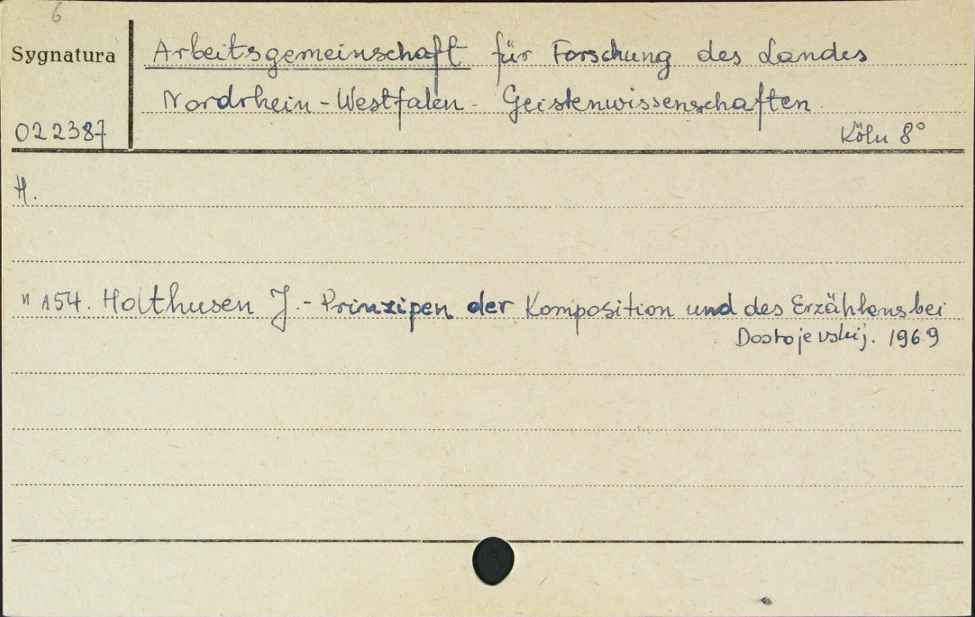 6
Sygnatura
Arbeitsgemeinschaft für Forschung des Landes
Nordrhein-Westfalen - Geistenwissenschaften
022387
Köln 8°
H.
" 154. Holthusen J. - Prinzipen der Komposition und des Erzählens bei
Dostojevskij. 1969